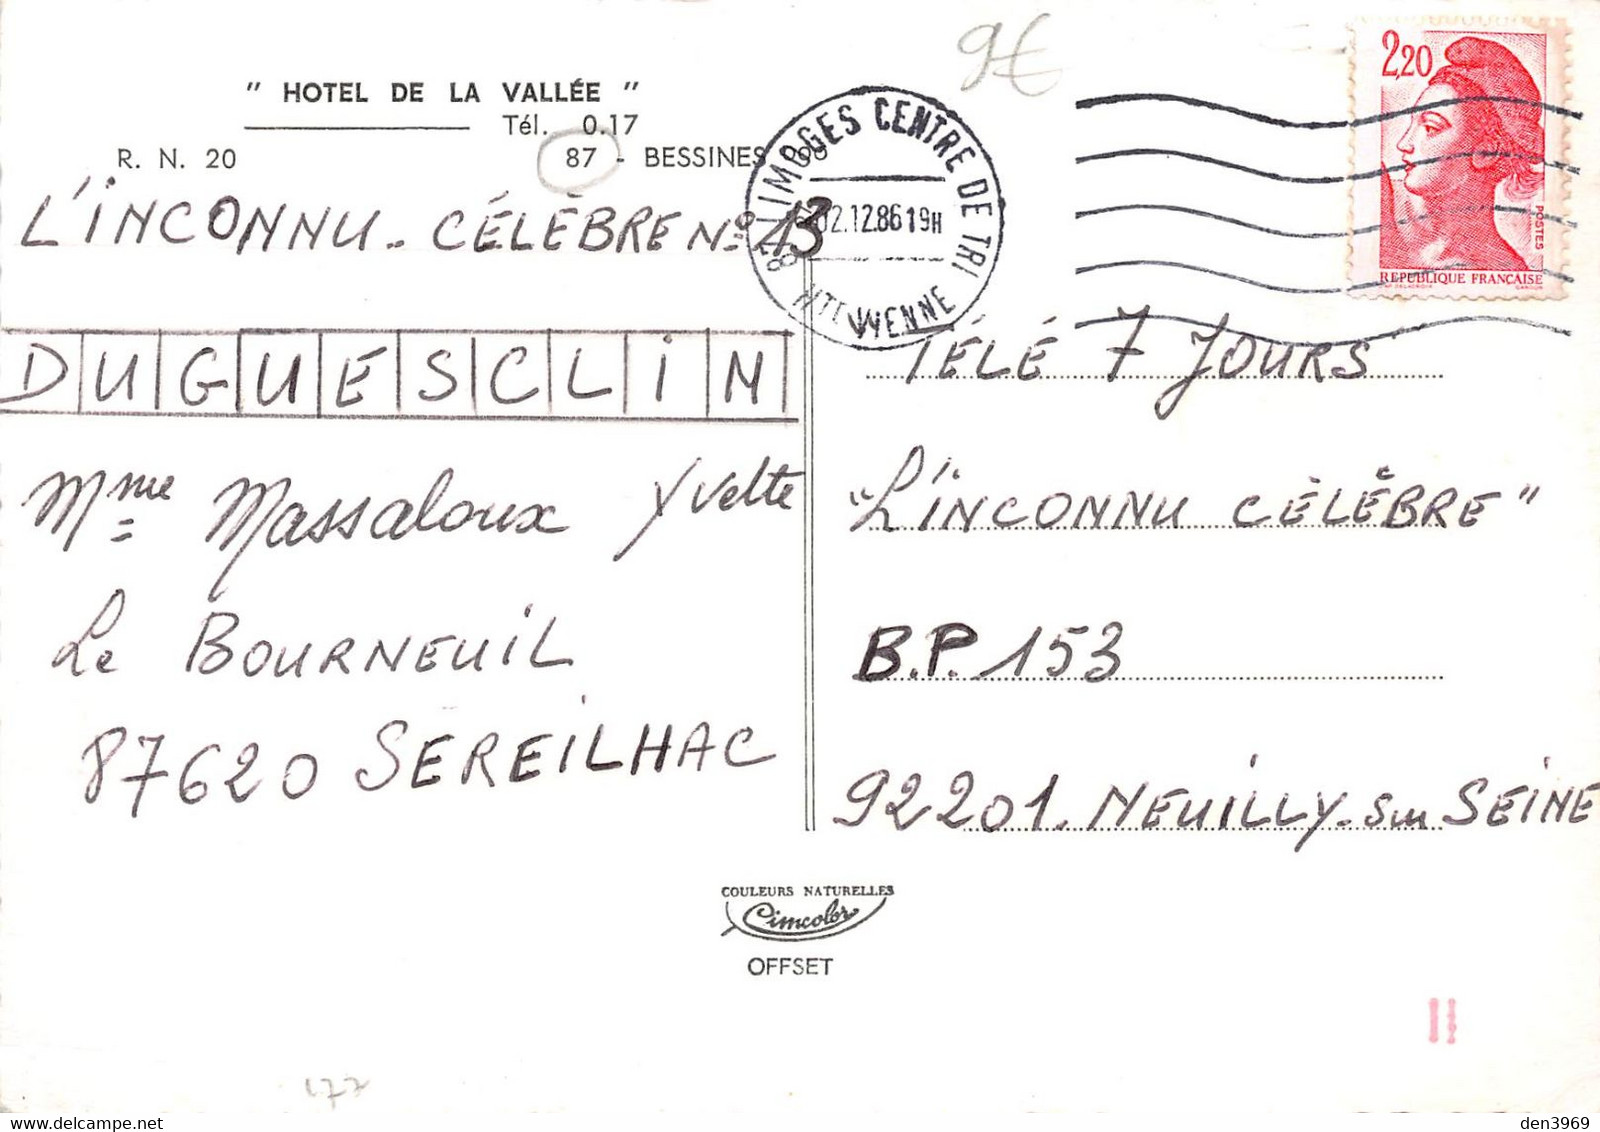 " HOTEL DE LA VALLÉE "
Tél. 0.17
R. N. 20
87 - BESSINES
9€
87 LIMOGES CENTRE DE TRI
02.12.86 19H
HTE VIENNE
2,20
POSTES
REPUBLIQUE FRANÇAISE
L'INCONNU - CÉLÈBRE N° 13
DUGUESCLIN
Mme Massaloux Yvette
Le BOURNEUIL
87620 SEREILHAC
TÉLÉ 7 JOURS
"L'INCONNU CÉLÈBRE"
B.P. 153
92201. NEUILLY-sur SEINE
COULEURS NATURELLES
Cimcolor
OFFSET
177
den3969